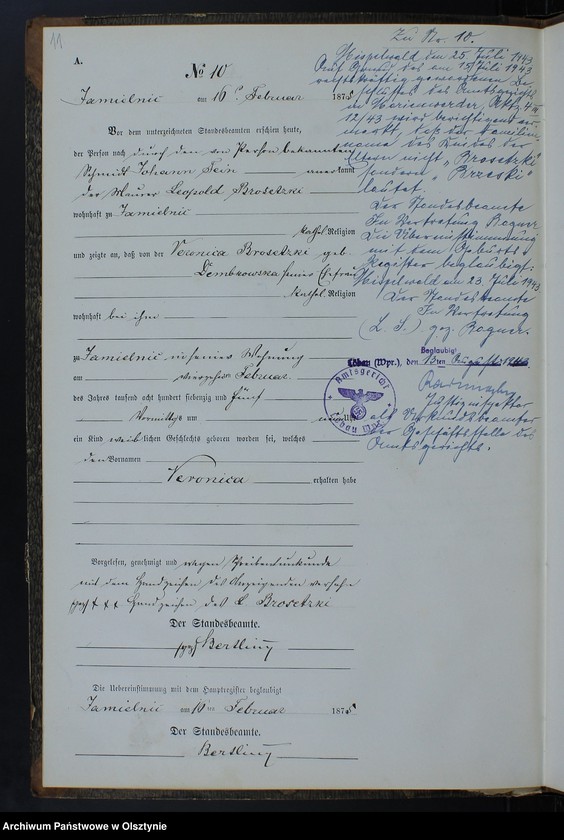 11
A.
No 10
Jamielnic am 16ten Februar 1875
Vor dem unterzeichneten Standesbeamten erschien heute,
der Person nach durch den von Person bekannten
Schmidt Johann anerkannt
der Maurer Leopold Brosetzki
wohnhaft zu Jamielnic
kathol. Religion
und zeigte an, daß von der Veronica Brosetzki geb.
Dembrowska seiner Ehefrau
kathol. Religion
wohnhaft bei ihm
zu Jamielnic in seiner Wohnung
am vierzehnten Februar
des Jahres tausend acht hundert siebenzig und fünf
Vormittags um neun Uhr
ein Kind weiblichen Geschlechts geboren worden sei, welches
den Vornamen
Veronica erhalten habe
Vorgelesen, genehmigt und wegen Schreibensunkunde
mit dem Handzeichen des Anzeigenden versehen
gez. + + + Handzeichen des L Brosetzki
Der Standesbeamte.
gez. Bertling
Die Uebereinstimmung mit dem Hauptregister beglaubigt
Jamielnic am 16ten Februar 1875
Der Standesbeamte.
Bertling
Zu No. 10.
den 25. Juli 1943
Auf Grund des am 15. Juli 1943
rechtskräftig gewordenen Be-
schlusses des Amtsgerichts
in Marienwerder,
12/43 wird berichtigend ver-
merkt, daß der Familien-
name des Kindes der
Eltern nicht „Brosetzki"
sondern „Brzeski"
lautet.
Der Standesbeamte
In Vertretung
Die Übereinstimmung
mit dem Geburts-
register beglaubigt.
am 23. Juli 1943
Der Standesbeamte
In Vertretung
(L. S.) gez.
Beglaubigt
Löbau (Wpr.), den 13ten August 1943
Justizinspektor
als Urkundsbeamter
der Geschäftsstelle des
Amtsgerichts.
Amtsgericht
Löbau Wpr.
Archiwum Państwowe w Olsztynie